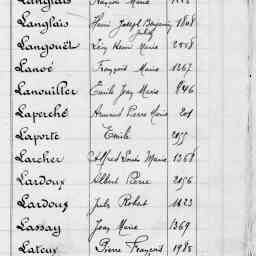 Langlais François Marie
Langlais Henri Joseph Benjamin 1808
Jules
Langouët Léon Henri Marie 2558
Lanoé François Marie 1267
Lanouiller Emile Jean Marie 846
Laperché Armand Pierre Marie 201
Laporte Emile 2055
Larcher Alfred Louis Marie 1368
Lardoux Albert Pierre 2056
Lardoux Jules Robert 1623
Lassay Jean Marie 1369
Lateux Pierre François 1985